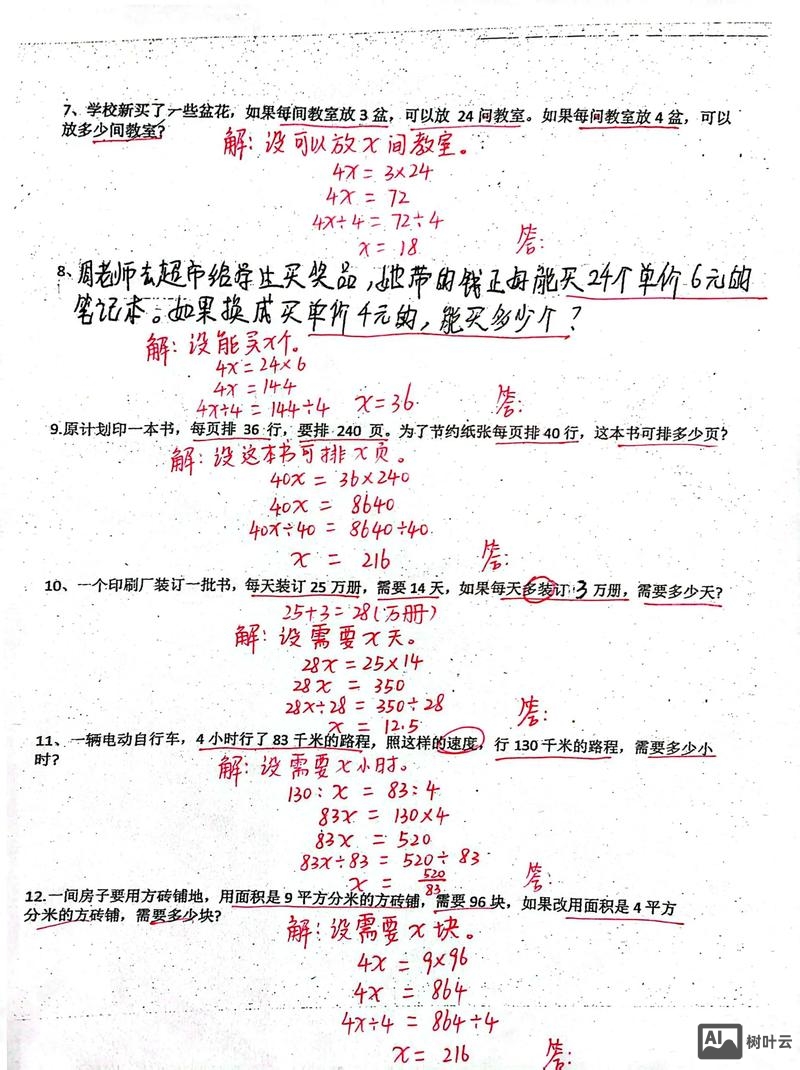 7、学校新买了一些盆花，如果每间教室放3盆，可以放 24问教室。如果每问教室放4盆，可以
放多少间教室？
解：设可以放x间教室。
4x = 3×24
4x = 72
4x÷4 = 72÷4
x = 18
答：
8、周老师去超市给学生买奖品，她带的钱正好能买24个单价6元的
笔记本。如果换成买单价4元的，能买多少个？
解：设能买x个。
4x = 24×6
4x = 144
4x÷4 = 144÷4 x=36
答：
9.原计划印一本书，每页排 36 行，要排 240 页。为了节约纸张每页排40行，这本书可排多少页？
解：设这本书可排x页。
40x = 36×240
40x = 8640
40x÷40 = 8640÷40
x = 216
答：
10、一个印刷厂装订一批书，每天装订25万册，需要14天，如果每天多装订3万册，需要多少天？
25+3=28（万册）
解：设需要x天。
28x = 25×14
28x = 350
28x÷28 = 350÷28
x = 12.5
答：
11、一辆电动自行车，4小时行了83千米的路程，照这样的速度，行130千米的路程，需要多少小
时？
解：设需要x小时。
130：x = 83：4
83x = 130×4
83x = 520
83x÷83 = 520÷83
x = 520/83
答：
12.一间房子要用方砖铺地，用面积是9平方分米的方砖铺，需要96块，如果改用面积是4平方
分米的方砖铺，需要多少块？
解：设需要x块。
4x = 9×96
4x = 864
4x÷4 = 864÷4
x = 216
答：
AI 树叶云